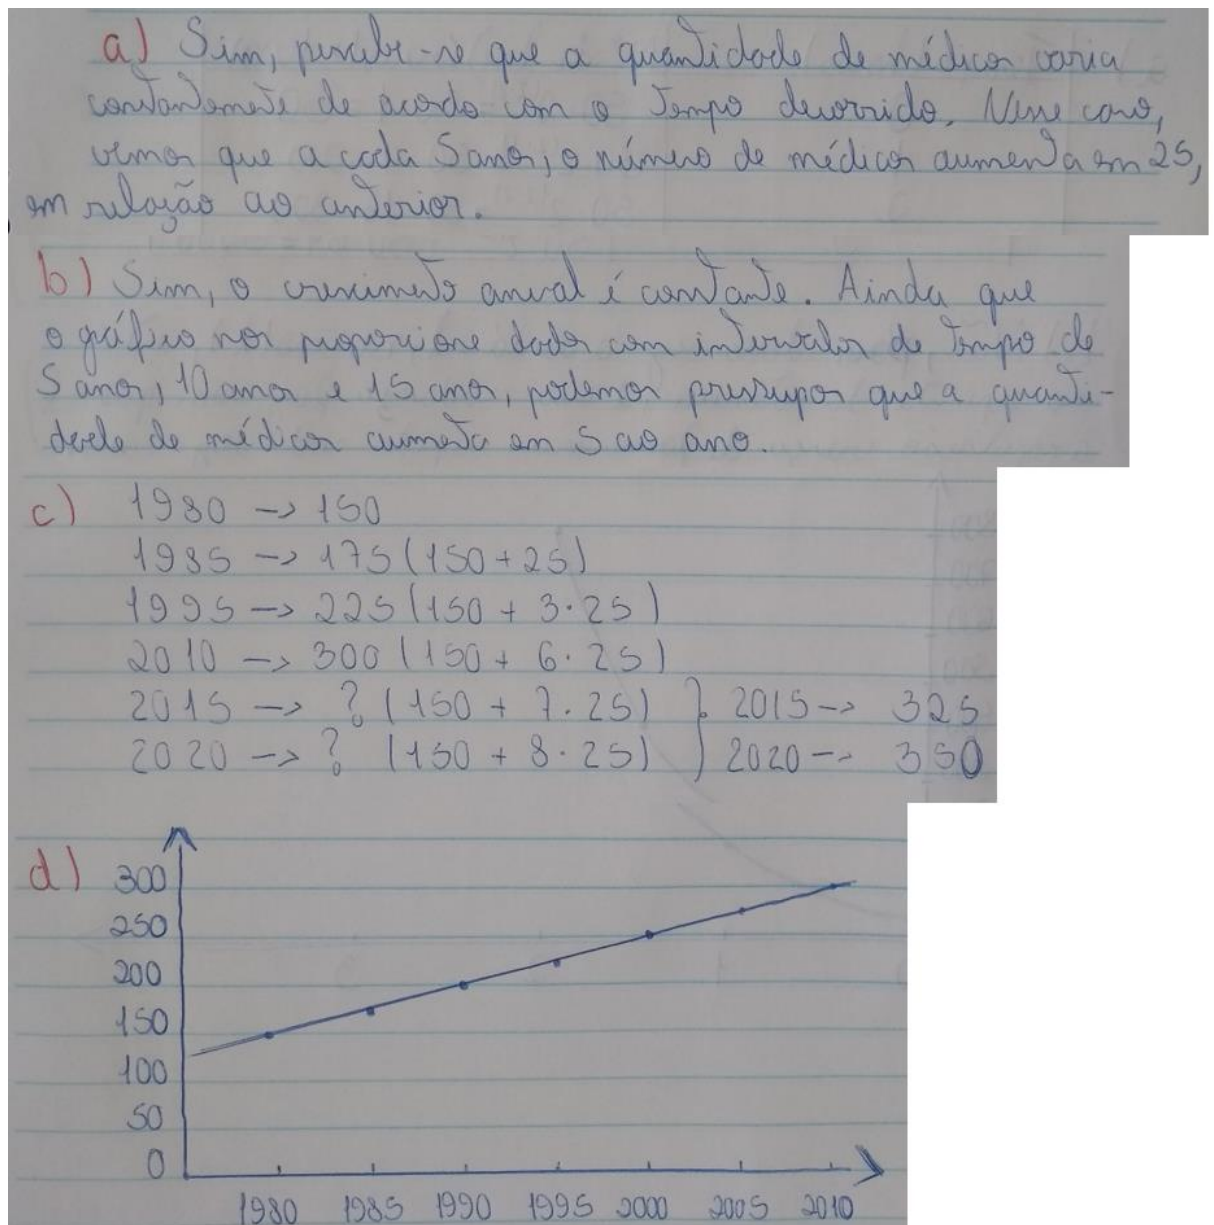 a) Sim, percebe-se que a quantidade de médicos varia
constantemente de acordo com o tempo decorrido. Nesse caso,
vemos que a cada 5 anos, o número de médicos aumenta em 25,
em relação ao anterior.
b) Sim, o crescimento anual é constante. Ainda que
o gráfico nos proporcione dados com intervalos de tempo de
5 anos, 10 anos e 15 anos, podemos pressupor que a quanti-
dade de médicos aumenta em 5 ao ano.
c) 1980 → 150
1985 → 175 (150 + 25)
1995 → 225 (150 + 3·25)
2010 → 300 (150 + 6·25)
2015 → ? (150 + 7·25) } 2015 → 325
2020 → ? (150 + 8·25) } 2020 → 350
d) 300
250
200
150
100
50
0
1980 1985 1990 1995 2000 2005 2010